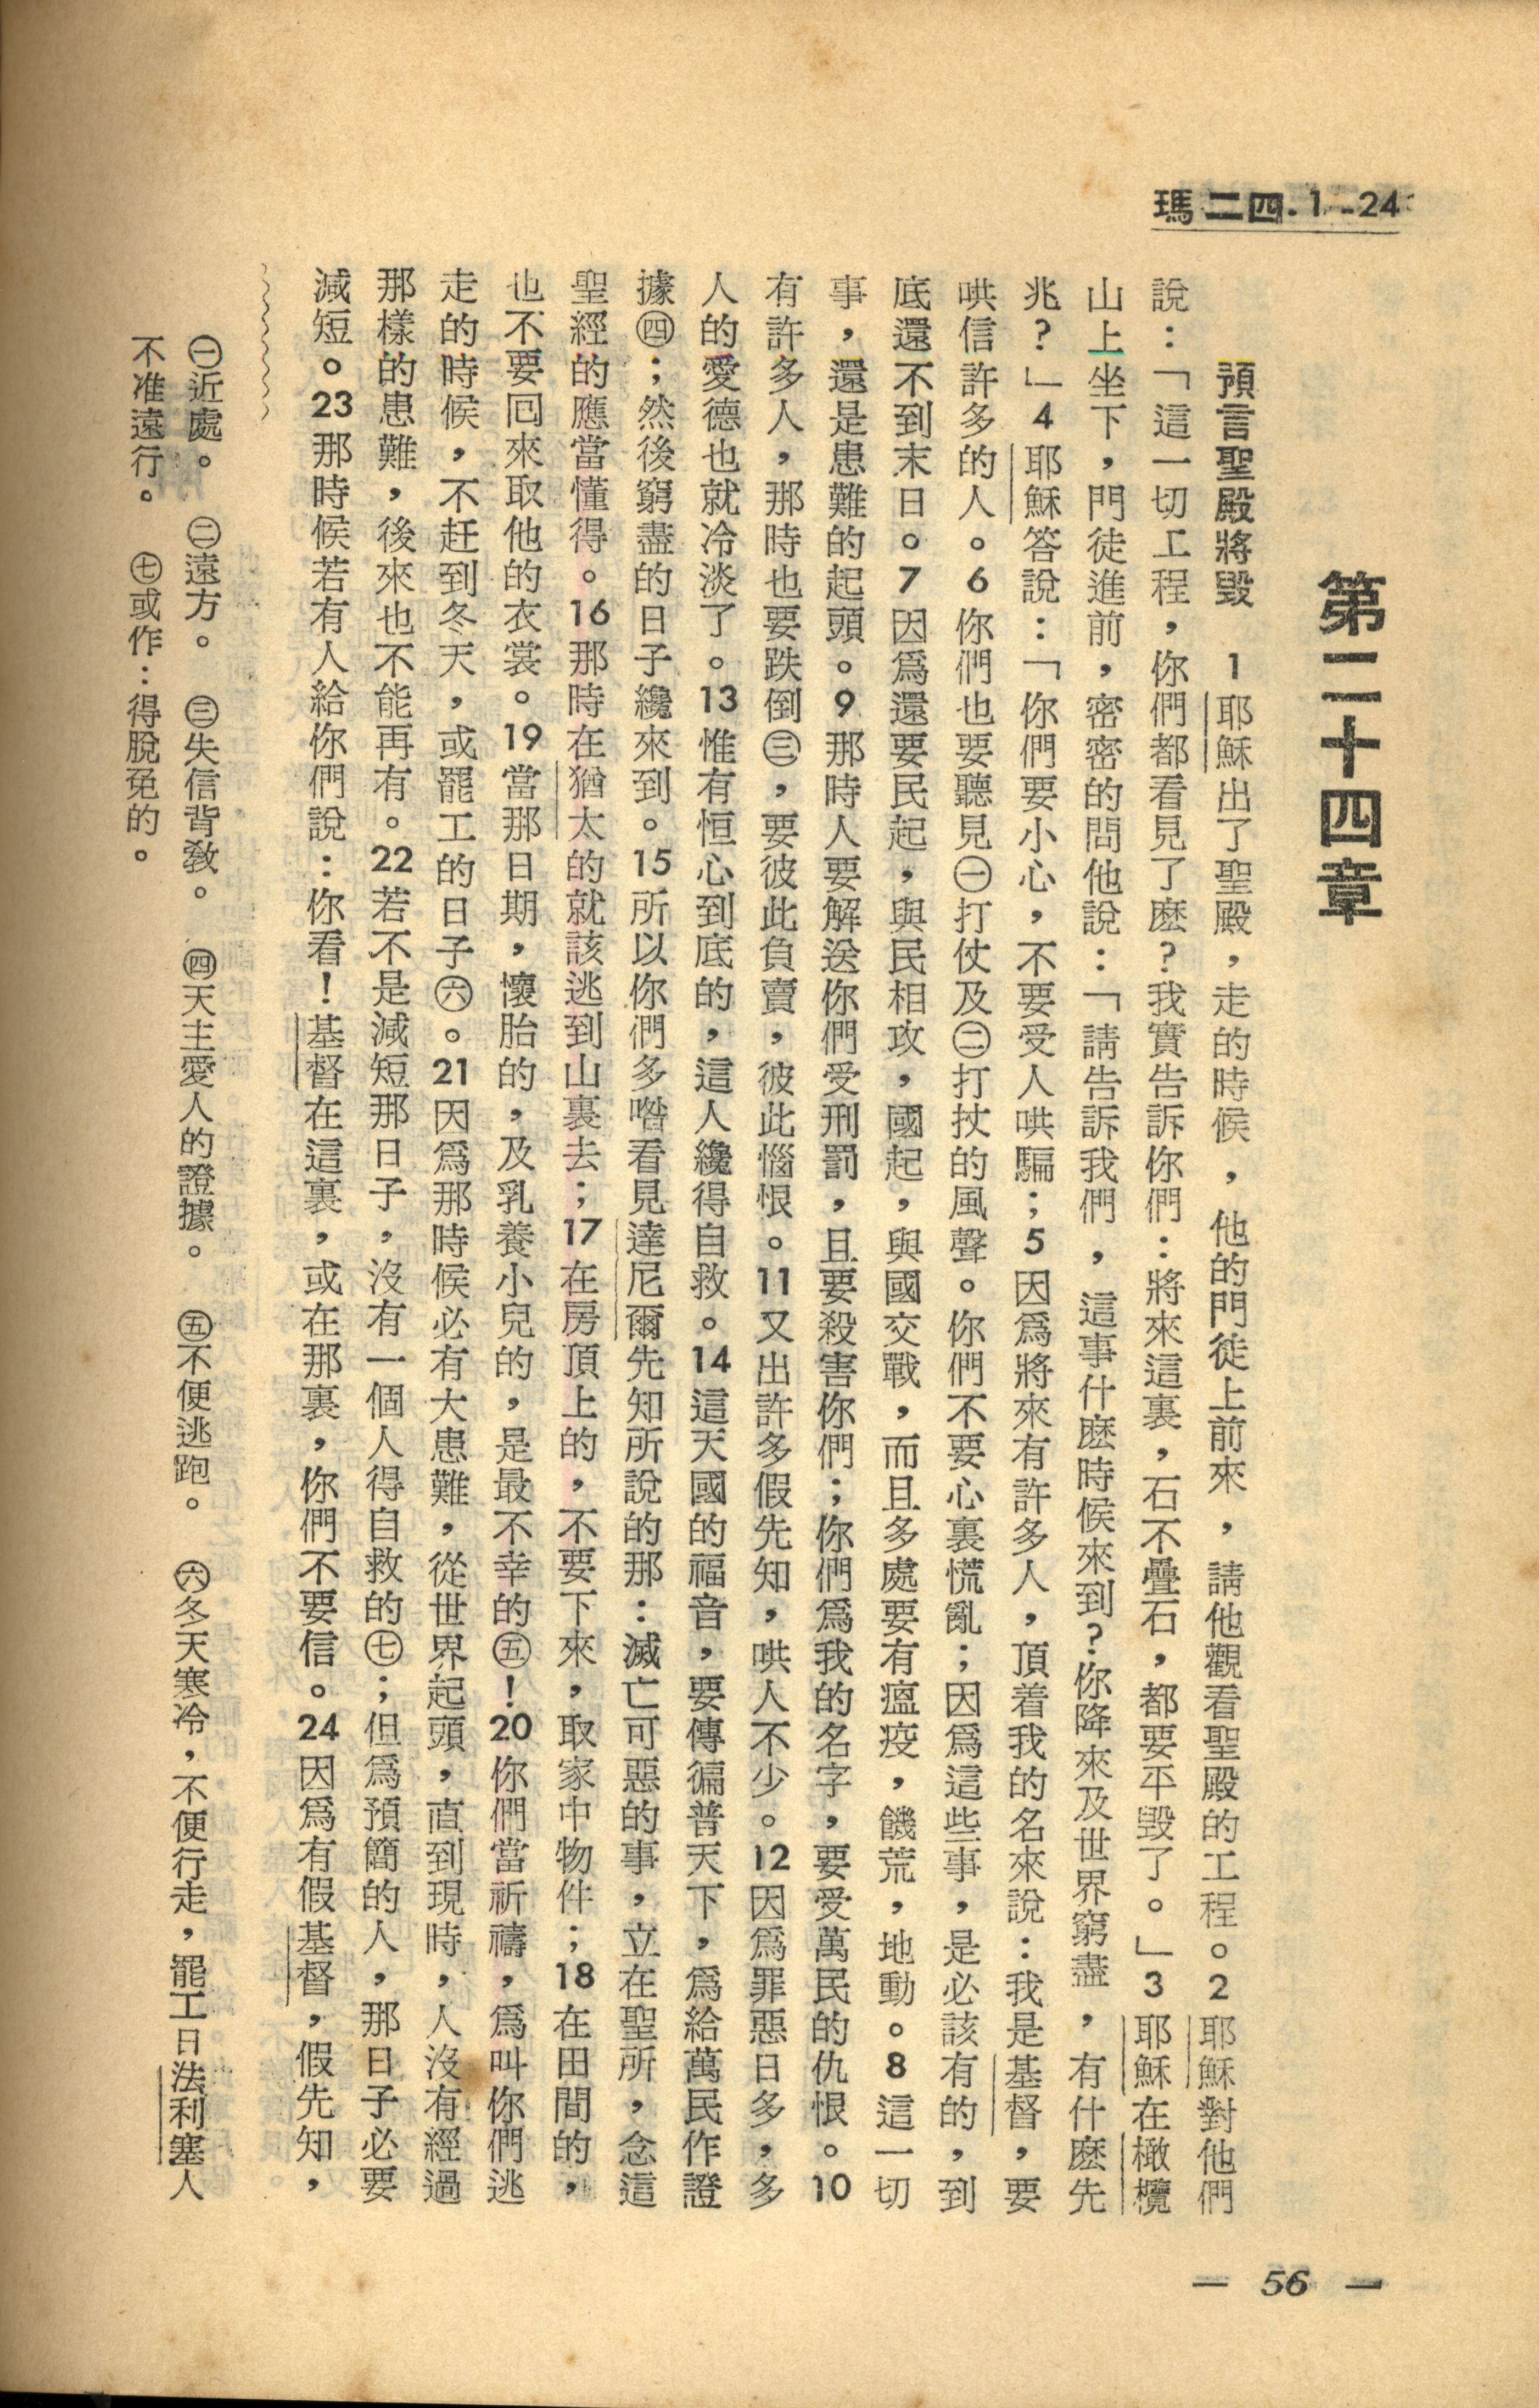 瑪二四．1－24
第二十四章
預言聖殿將毀　1耶穌出了聖殿，走的時候，他的門徒上前來，請他觀看聖殿的工程。2耶穌對他們
說：「這一切工程，你們都看見了麽？我實告訴你們：將來這裏，石不疊石，都要平毀了。」3耶穌在橄欖
山上坐下，門徒進前，密密的問他說：「請告訴我們，這事什麽時候來到？你降來及世界窮盡，有什麽先
兆？」4耶穌答說：「你們要小心，不要受人哄騙；5因爲將來有許多人，頂着我的名來說：我是基督，要
哄信許多的人。6你們也要聽見㊀打仗及㊁打扙的風聲。你們不要心裏慌亂；因爲這些事，是必該有的，到
底還不到末日。7因爲還要民起，與民相攻，國起，與國交戰，而且多處要有瘟疫，饑荒，地動。8這一切
事，還是患難的起頭。9那時人要解送你們受刑罰，且要殺害你們；你們爲我的名字，要受萬民的仇恨。10
有許多人，那時也要跌倒㊂，要彼此負賣，彼此惱恨。11又出許多假先知，哄人不少。12因爲罪惡日多，多
人的愛德也就冷淡了。13惟有恒心到底的，這人纔得自救。14這天國的福音，要傳徧普天下，爲給萬民作證
據㊃；然後窮盡的日子纔來到。15所以你們多喒看見達尼爾先知所說的那：滅亡可惡的事，立在聖所，念這
聖經的應當懂得。16那時在猶太的就該逃到山裏去；17在房頂上的，不要下來，取家中物件；18在田間的，
也不要囘來取他的衣裳。19當那日期，懷胎的，及乳養小兒的，是最不幸的㊄！20你們當祈禱，爲叫你們逃
走的時候，不赶到冬天，或罷工的日子㊅。21因爲那時候必有大患難，從世界起頭，直到現時，人沒有經過
那樣的患難，後來也不能再有。22若不是減短那日子，沒有一個人得自救的㊆；但爲預簡的人，那日子必要
減短。23那時候若有人給你們說：你看！基督在這裏，或在那裏，你們不要信。24因爲有假基督，假先知，
㊀近處。　㊁遠方。　㊂失信背敎。　㊃天主愛人的證據。　㊄不便逃跑。　㊅冬天寒冷，不便行走，罷工日法利塞人
不准遠行。　㊆或作：得脫免的。
— 56 —